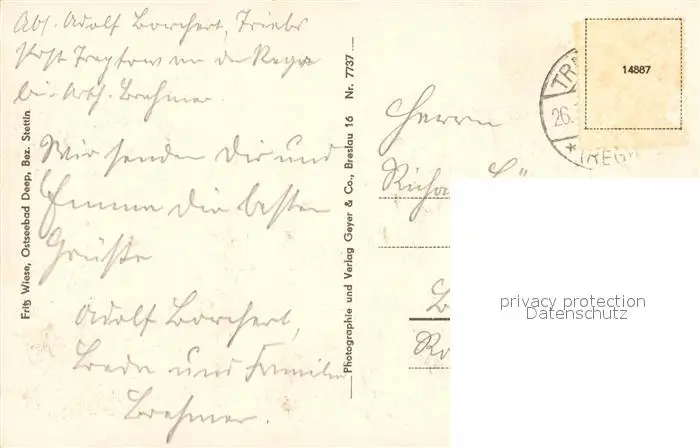 Abs. Adolf Borchert, Triebs
Post Treptow an der Rega
bei Brehmer.
Wir senden Dir und
Emma die besten
Grüße
Adolf Borchert,
und Familie
Brehmer.
Fritz Wiese, Ostseebad Deep, Bez. Stettin
Photographie und Verlag Geyer & Co., Breslau 16 Nr. 7737
Herrn
14887
26.
privacy protection
Datenschutz